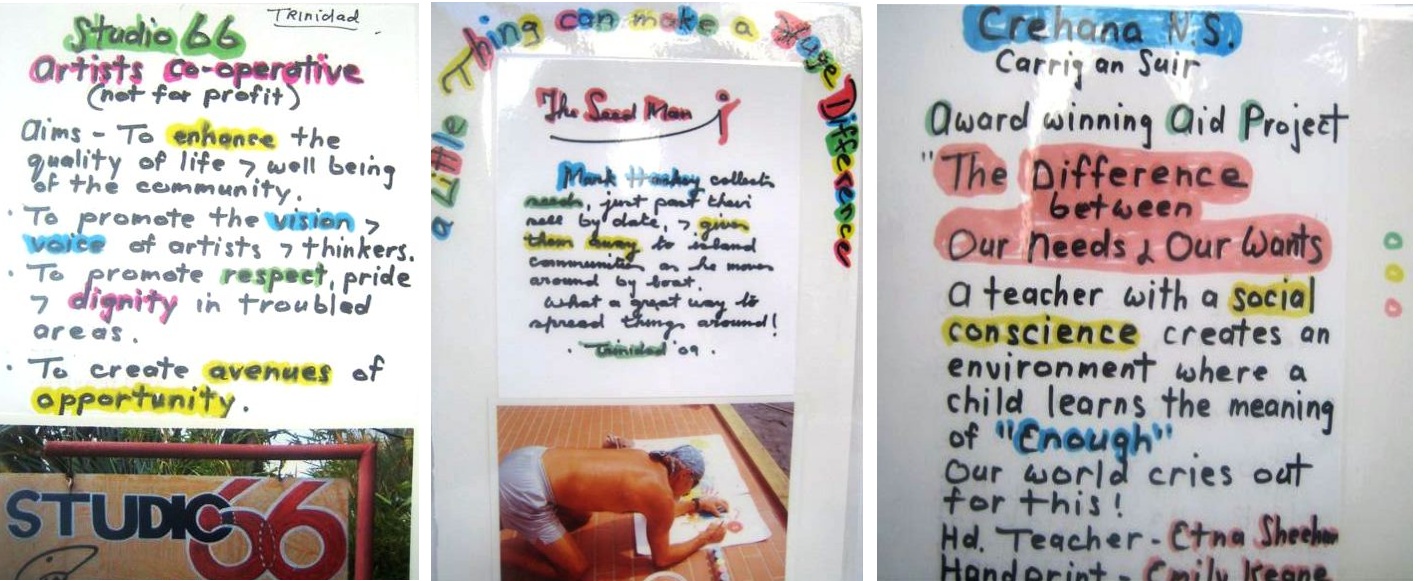 Trinidad
Studio 66
Artists co-operative
(not for profit)
Aims - To enhance the
quality of life > well being
of the community.
· To promote the vision >
voice of artists > thinkers.
· To promote respect, pride
> dignity in troubled
areas.
· To create avenues of
opportunity.
STUDIO 66
a Little Thing can make a Huge Difference
The Seed Man
Mark Hookey collects
seeds, just past their
sell by date, > gives
them away to island
communities as he moves
around by boat.
What a great way to
spread things around!
· Trinidad '09 ·
Crehana N.S.
Carrig an Suir
Award winning Aid Project
"The Difference
between
Our Needs & Our Wants
a teacher with a social
conscience creates an
environment where a
child learns the meaning
of "Enough"
Our world cries out
for this!
Hd. Teacher - Etna Sheehan
Handprint - Emily Keane